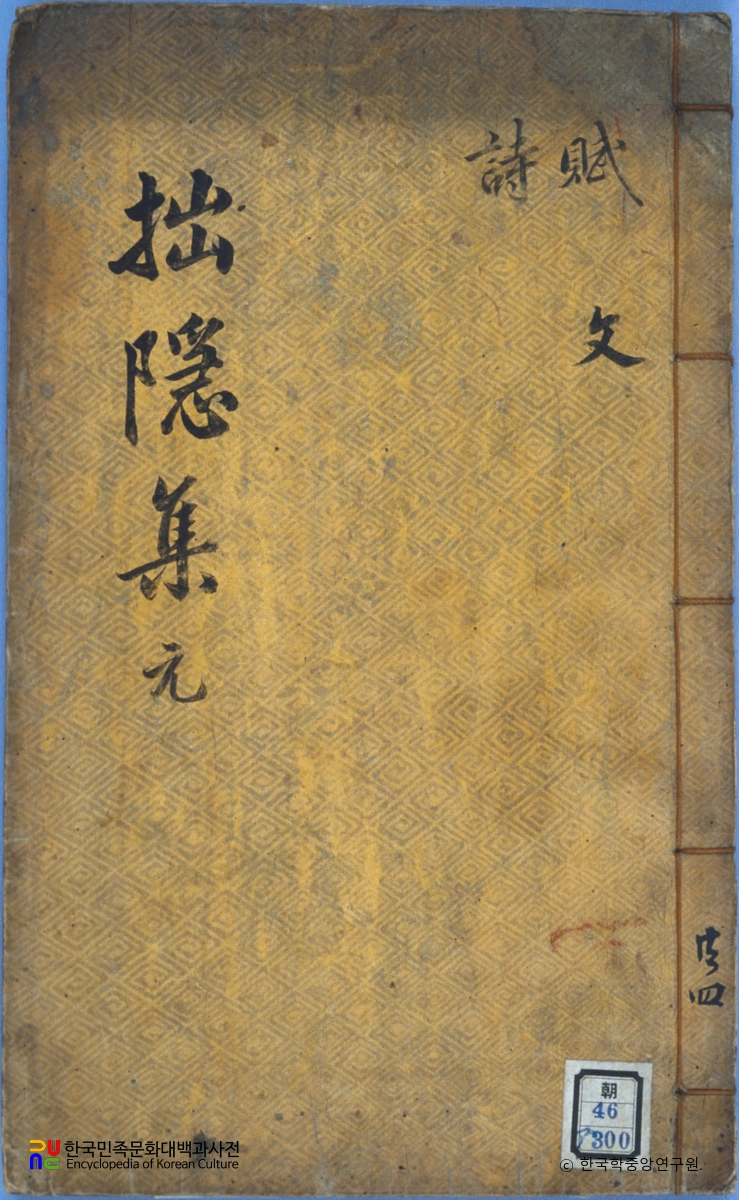 賦
詩
文
拙隱集 元
共四
朝
46
300
한국민족문화대백과사전
Encyclopedia of Korean Culture
© 한국학중앙연구원.